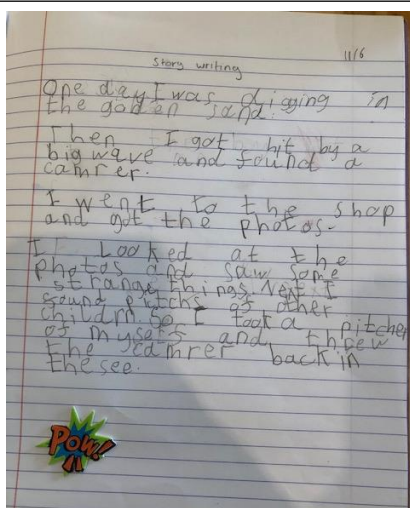 11/6
Story writing
One day I was digging in
the golden sand.
Then I got hit by a
big wave and found a
camrer.
I went to the shop
and got the photos.
I Looked at the
photos and saw some
strange things. Next I
found putchs of other
childrn. so I took a pitcher
of myself and threw
the camrer back in
the see.
POW!